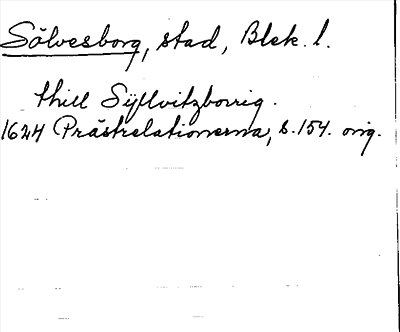 Sölvesborg, stad, Blek. l.
thill Sÿlvitzborrig.
1624 Prästrelationerna, s. 154. orig.